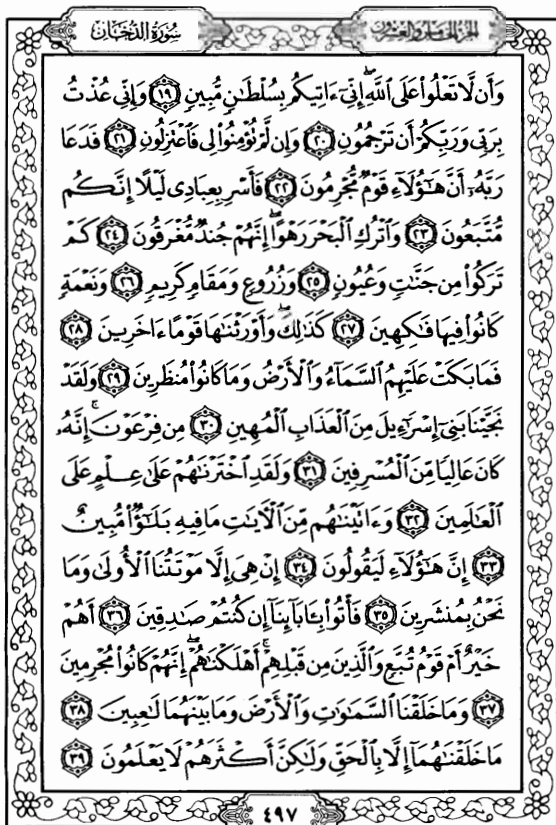 الجزء الخامس والعشرون
سُورَةُ الدُّخَانِ
وَأَن لَّا تَعْلُوا۟ عَلَى ٱللَّهِ ۖ إِنِّىٓ ءَاتِيكُم بِسُلْطَٰنٍ مُّبِينٍ ١٩ وَإِنِّى عُذْتُ
بِرَبِّى وَرَبِّكُمْ أَن تَرْجُمُونِ ٢٠ وَإِن لَّمْ تُؤْمِنُوا۟ لِى فَٱعْتَزِلُونِ ٢١ فَدَعَا
رَبَّهُۥٓ أَنَّ هَٰٓؤُلَآءِ قَوْمٌ مُّجْرِمُونَ ٢٢ فَأَسْرِ بِعِبَادِى لَيْلًا إِنَّكُم
مُّتَّبَعُونَ ٢٣ وَٱتْرُكِ ٱلْبَحْرَ رَهْوًا ۖ إِنَّهُمْ جُندٌ مُّغْرَقُونَ ٢٤ كَمْ
تَرَكُوا۟ مِن جَنَّٰتٍ وَعُيُونٍ ٢٥ وَزُرُوعٍ وَمَقَامٍ كَرِيمٍ ٢٦ وَنَعْمَةٍ
كَانُوا۟ فِيهَا فَٰكِهِينَ ٢٧ كَذَٰلِكَ ۖ وَأَوْرَثْنَٰهَا قَوْمًا ءَاخَرِينَ ٢٨
فَمَا بَكَتْ عَلَيْهِمُ ٱلسَّمَآءُ وَٱلْأَرْضُ وَمَا كَانُوا۟ مُنظَرِينَ ٢٩ وَلَقَدْ
نَجَّيْنَا بَنِىٓ إِسْرَٰٓءِيلَ مِنَ ٱلْعَذَابِ ٱلْمُهِينِ ٣٠ مِن فِرْعَوْنَ ۚ إِنَّهُۥ
كَانَ عَالِيًا مِّنَ ٱلْمُسْرِفِينَ ٣١ وَلَقَدِ ٱخْتَرْنَٰهُمْ عَلَىٰ عِلْمٍ عَلَى
ٱلْعَٰلَمِينَ ٣٢ وَءَاتَيْنَٰهُم مِّنَ ٱلْءَايَٰتِ مَا فِيهِ بَلَٰٓؤٌا۟ مُّبِينٌ
٣٣ إِنَّ هَٰٓؤُلَآءِ لَيَقُولُونَ ٣٤ إِنْ هِىَ إِلَّا مَوْتَتُنَا ٱلْأُولَىٰ وَمَا
نَحْنُ بِمُنشَرِينَ ٣٥ فَأْتُوا۟ بِـَٔابَآئِنَآ إِن كُنتُمْ صَٰدِقِينَ ٣٦ أَهُمْ
خَيْرٌ أَمْ قَوْمُ تُبَّعٍ وَٱلَّذِينَ مِن قَبْلِهِمْ ۚ أَهْلَكْنَٰهُمْ ۖ إِنَّهُمْ كَانُوا۟ مُجْرِمِينَ
٣٧ وَمَا خَلَقْنَا ٱلسَّمَٰوَٰتِ وَٱلْأَرْضَ وَمَا بَيْنَهُمَا لَٰعِبِينَ ٣٨
مَا خَلَقْنَٰهُمَآ إِلَّا بِٱلْحَقِّ وَلَٰكِنَّ أَكْثَرَهُمْ لَا يَعْلَمُونَ ٣٩
٤٩٧